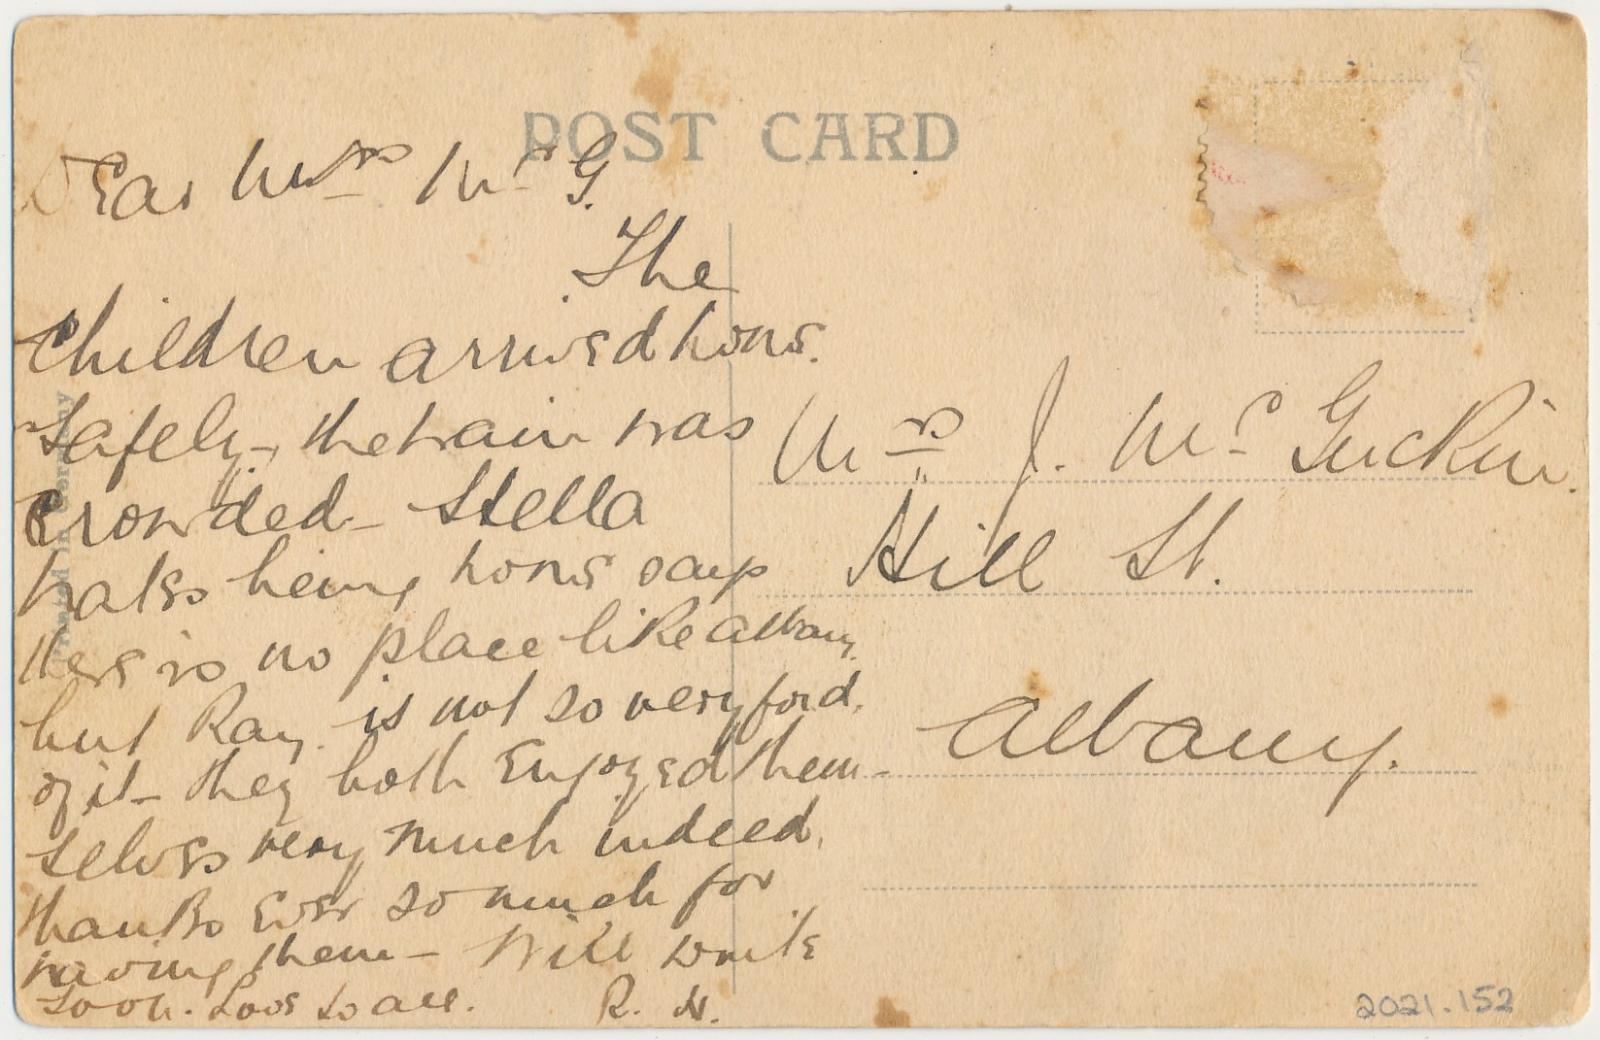 POST CARD
Dear Mrs McG.
The
Children arrived home.
Safely, the train was
Crowded - Stella
hates being home says
there is no place like Albany.
but Ray. is not so very fond,
of it - they both Enjoyed them-
selves very much indeed,
thanks Ever so much for
having them - Will write
soon. Love to all. R. H.
Printed in Germany
Mrs J. McGuckin.
Hill St.
Albany.
2021.152